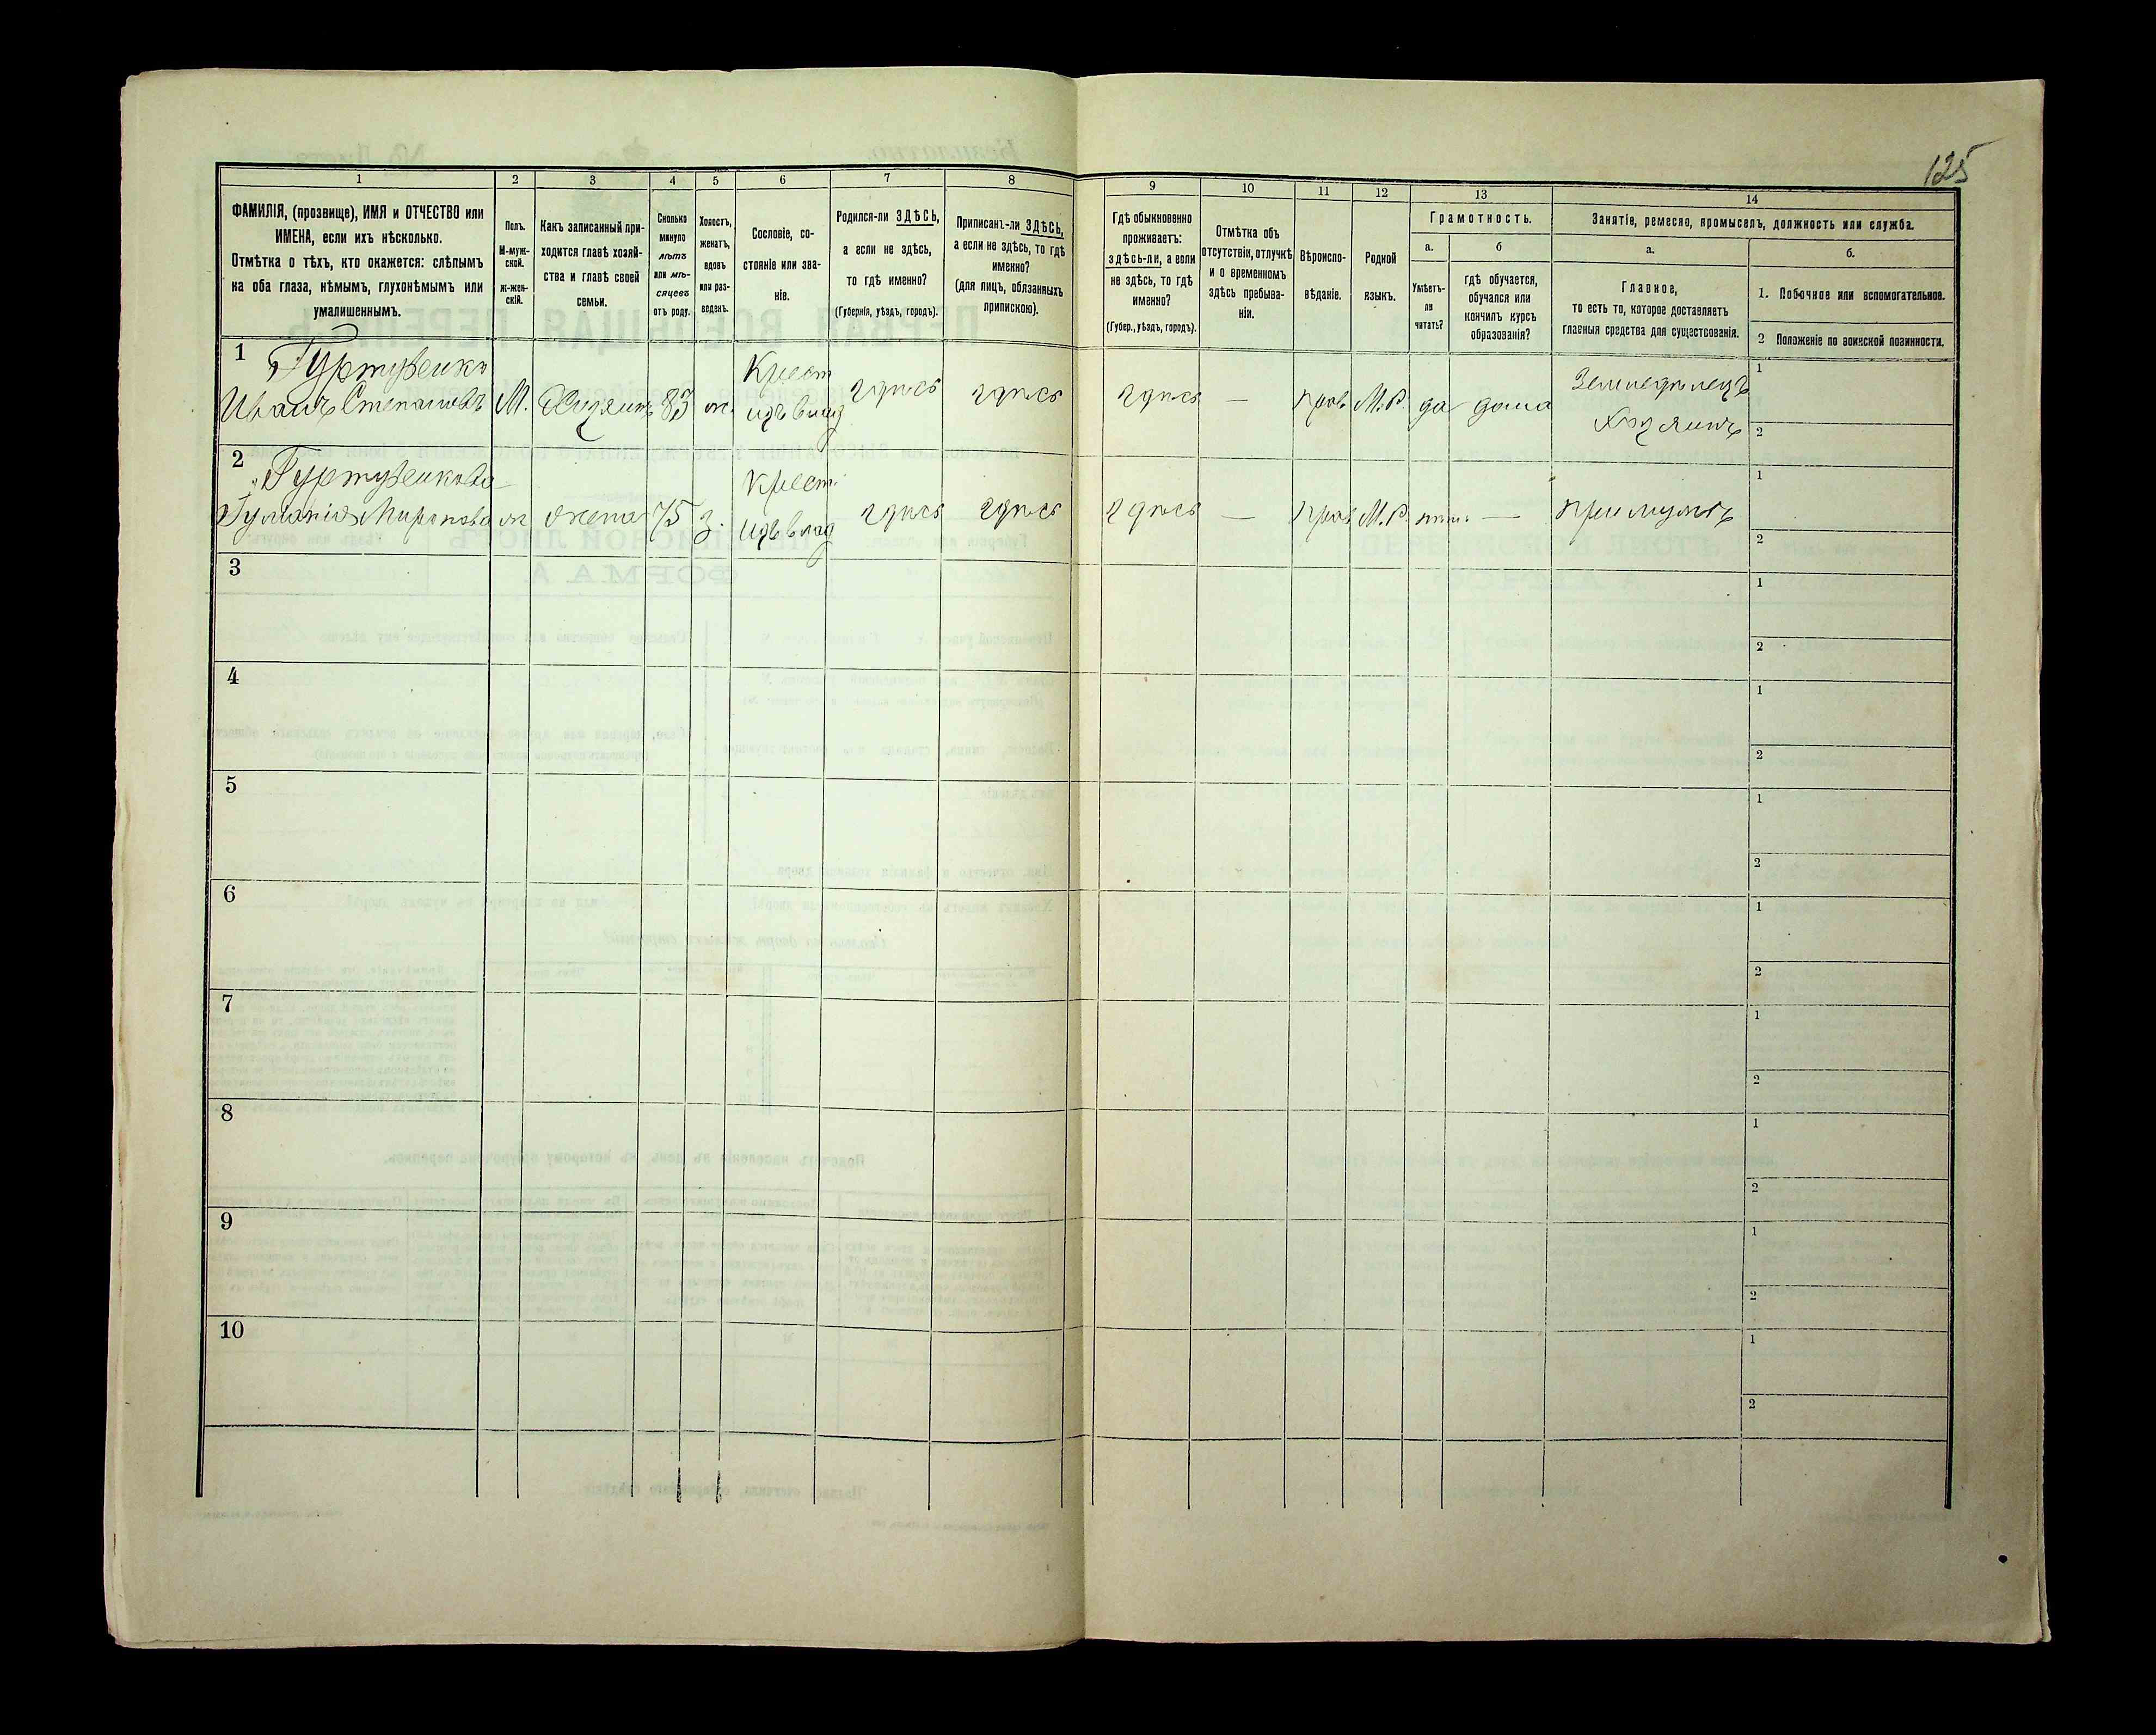 125
1 2 3 4 5 6 7 8 9 10 11 12 13 14
ФАМИЛІЯ, (прозвище), ИМЯ и ОТЧЕСТВО или
ИМЕНА, если ихъ нѣсколько.
Отмѣтка о тѣхъ, кто окажется: слѣпымъ
на оба глаза, нѣмымъ, глухонѣмымъ или
умалишеннымъ.
Полъ.
М-муж-
ской.
ж-жен-
скій.
Какъ записанный при-
ходится главѣ хозяй-
ства и главѣ своей
семьи.
Сколько
минуло
лѣтъ
или мѣ-
сяцевъ
отъ роду.
Холостъ,
женатъ,
вдовъ
или раз-
веденъ.
Сословіе, со-
стояніе или зва-
ніе.
Родился-ли ЗДѢСЬ,
а если не здѣсь,
то гдѣ именно?
(Губернія, уѣздъ, городъ).
Приписанъ-ли ЗДѢСЬ,
а если не здѣсь, то гдѣ
именно?
(для лицъ, обязанныхъ
припискою).
Гдѣ обыкновенно
проживаетъ:
здѣсь-ли, а если
не здѣсь, то гдѣ
именно?
(Губер., уѣздъ, городъ).
Отмѣтка объ
отсутствіи, отлучкѣ
и о временномъ
здѣсь пребыва-
ніи.
Вѣроиспо-
вѣданіе.
Родной
языкъ.
Грамотность.
а.
Умѣетъ-
ли
читать?
б
гдѣ обучается,
обучался или
кончилъ курсъ
образованія?
Занятіе, ремесло, промыселъ, должность или служба.
а.
Главное,
то есть то, которое доставляетъ
главныя средства для существованія.
б.
1. Побочное или вспомогательное.
2 Положеніе по воинской повинности.
1
Иванъ Степановъ М. Хозяинъ 83 ж. Крест
изъ влад здѣсь здѣсь здѣсь — прав М.Р. да дома Земледѣлецъ
Хозяинъ
1
2
2
жена 75 з. Крест.
изъ влад здѣсь здѣсь здѣсь — прав М.Р. нѣтъ —
1
2
3 1
2
4 1
2
5 1
2
6 1
2
7 1
2
8 1
2
9 1
2
10 1
2